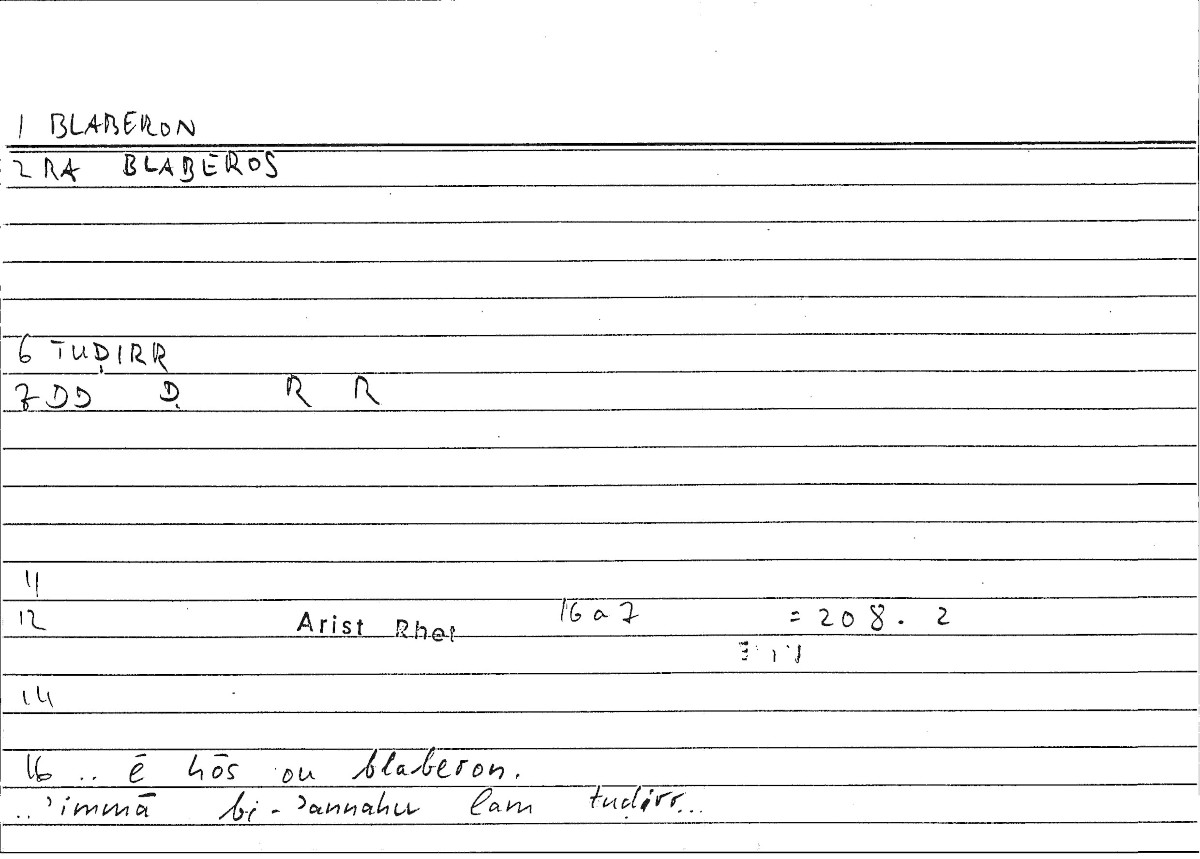 1 BLABERON
2 RA BLABEROS
6 TUḌIRR
7 DD Ḍ R R
11
12 Arist Rhet 16a7 = 208. 2
14
16 .. ē hōs ou blaberon.
..ʾimmā bi-ʾannahu lam tuḍirr...